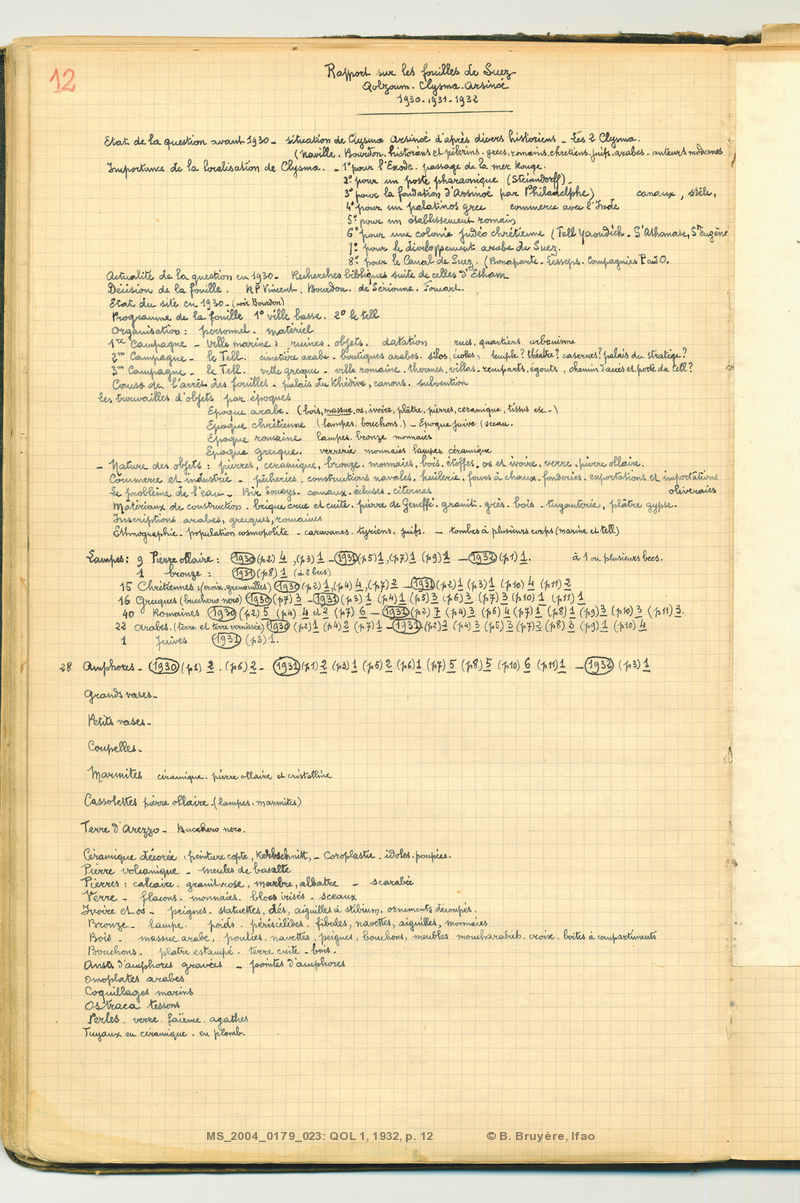 12
Rapport sur les fouilles de Suez
Qolzoum. Clysma. Arsinoé
1930-1931-1932
Etat de la question avant 1930 - situation de Clysma Arsinoé d'après divers historiens - Les 2 Clysma.
(Naville. Bourdon. historiens et pèlerins. grecs, romains, chrétiens, juifs, arabes. auteurs modernes
Importance de la localisation de Clysma. - 1° pour l'Exode. passage de la mer Rouge.
2° pour un poste pharaonique (Steindorff) -
3° pour la fondation d'Arsinoé par Philadelphe) canaux, stèle,
4° pour un grec commerce avec l'Inde
5° pour un établissement romain
6° pour une colonie judéo chrétienne (Tell Yaoudieh - St Athanase, St Eugène
7° pour le développement arabe de Suez.
8° pour le Canal de Suez. (Bonaparte. Lesseps. Compagnies P and O.
Actualité de la question en 1930 - Recherches bibliques suite de celles d'Etham
Décision de la fouille. R.P. Vincent. Bourdon. de Sérionne. Foucart.
Etat du site en 1930 - (voir Bourdon)
Programme de la fouille 1° ville basse. 2° le tell
Organisation: personnel. matériel
1re Campagne - Ville marine: ruines. objets. datation rues, quartiers urbanisme
2me Campagne - le Tell. cimetière arabe - boutiques arabes. silos, temple? théâtre? casernes? palais du stratège?
3me Campagne - le Tell. ville grecque - ville romaine. thermes, villas. remparts, égouts, chemin d'accès et porte du tell?
Cause de l'arrêt des fouilles - palais du Khédive, canons. subvention
Les trouvailles d'objets par époques
Epoque arabe. (bois, massue, os, ivoire, plâtre, pierres, céramique, tissus etc -)
Epoque chrétienne (lampes. bouchons.) - Epoque juive (sceau.
Epoque romaine lampes. bronze monnaies
Epoque grecque. verrerie monnaies lampes céramique
- Nature des objets: pierres, céramique, bronze. monnaies, bois. étoffes, os et ivoire. verre. pierre ollaire.
Commerce et industrie - pêcheries. constructions navales. huilerie. fours à chaux. fonderies. exportations et importations
Le problème de l'eau - Bir Soueys - canaux. écluses - citernes oliveraies
Matériaux de construction. brique crue et cuite. pierre de Geneffé. granit. grès. bois - tuyauterie, plâtre gypse.
Inscriptions arabes, grecques, romaines
Ethnographie. population cosmopolite - caravanes. tyriens. juifs. - tombes à plusieurs corps (marine et tell)
Lampes: 9 Pierre ollaire: 1930 (p2) 4, (p3) 1 - 1931 (p5) 1, (p7) 1 (p9) 1 - 1932 (p1) 1. à 1 ou plusieurs becs.
1 bronze: 1931 (p8) 1 (à 2 becs)
15 Chrétiennes: (croix, grenouilles) 1930 (p2) 1, (p4) 4, (p7) 2 - 1931 (p2) 1 (p3) 1 (p10) 4 (p11) 2
16 Grecques (bucchero nero) 1930 (p7) 3 - 1931 (p3) 1 (p4) 1 (p5) 3 (p6) 3 (p7) 3 (p10) 1 (p11) 1
40 Romaines 1930 (p2) 5 (p4) 4 et 2 (p7) 6 - 1931 (p2) 7 (p4) 3 (p6) 4 (p7) 1 (p8) 1 (p9) 3 (p10) 3 (p11) 3.
22 arabes. (terre et terre vernissée) 1930 (p2) 1 (p4) 2 (p7) 1 - 1931 (p2) 1 (p4) 3 (p5) 3 (p7) 2 (p8) 3 (p9) 1 (p10) 4
1 Juives 1931 (p3) 1.
28 Amphores - 1930 (p1) 2 - (p6) 2 - 1931 (p1) 2 (p3) 1 (p5) 2 (p6) 1 (p7) 5 (p8) 5 (p10) 6 (p11) 1 - 1932 (p3) 1
Grands vases -
Petits vases -
Coupelles -
Marmites céramique. pierre ollaire et cristalline
Cassolettes pierre ollaire. (lampes. marmites)
Terre d'Arezzo - Bucchero nero.
Céramique décorée: peinture copte, Kerbschnitt, - Coroplastie. idoles. poupées.
Pierre volcanique - meules de basalte
Pierres: calcaire. granit rose, marbre, albâtre - scarabée
Verre - flacons. monnaies. blocs irisés - sceaux
Ivoire et os - peignes. statuettes, dés, aiguilles à stibium, ornements découpés.
Bronze - lampe. poids. fibules, navettes, aiguilles, monnaies
Bois - massue arabe, poulies. navettes, peignes, bouchons, meubles moucharabieh. croix. boites à compartiments
Bouchons. plâtre estampé. terre cuite - bois.
Anses d'amphores gravées - pointes d'amphores
Omoplates arabes
Coquillages marins
Ostraca tessons
Perles. verre. faïence. agathes
Tuyaux en céramique - en plomb.
MS_2004_0179_023: QOL 1, 1932, p. 12 © B. Bruyère, Ifao